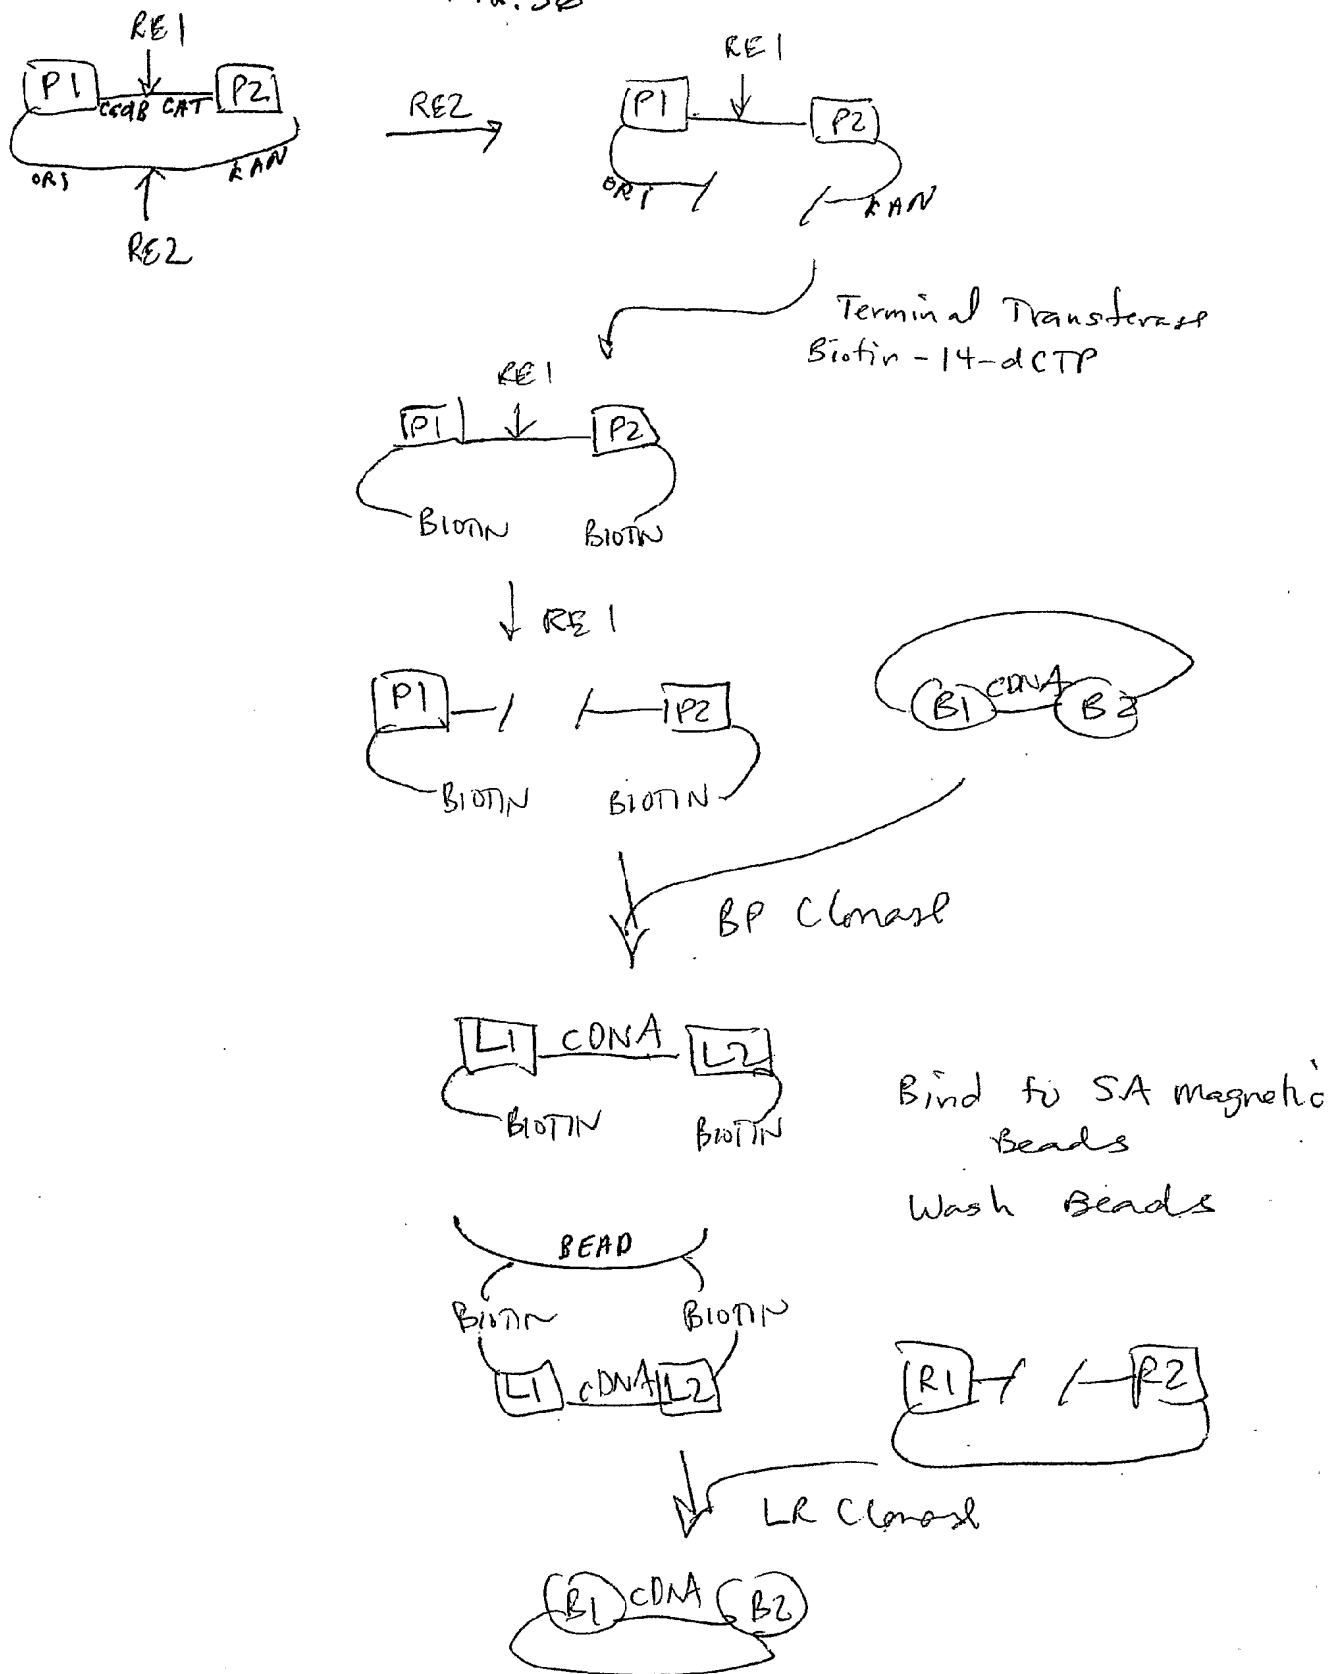 RE1
P1 CCdB CAT P2
ORI KAN
RE2
RE2
RE1
P1 P2
ORI KAN
Terminal Transferase
Biotin-14-dCTP
RE1
P1 P2
BIOTIN BIOTIN
RE1
P1 P2
BIOTIN BIOTIN
B1 cDNA B2
BP Clonase
L1 cDNA L2
BIOTIN BIOTIN
Bind to SA magnetic
Beads
Wash Beads
BEAD
BIOTIN BIOTIN
L1 cDNA L2
R1 R2
LR Clonase
B1 cDNA B2